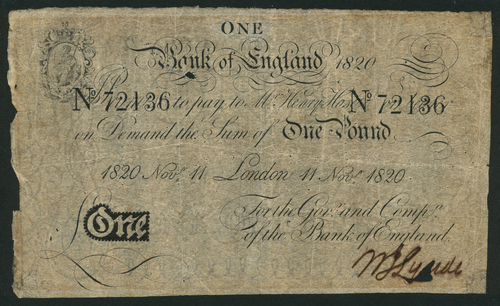 ONE
Bank of England 1820
I Promise to pay to Mr. Henry Hase
No 72136 No 72136
on Demand the Sum of One Pound
1820 Novr. 11 London 11 Novr. 1820
For the Govr. and Compa. of the Bank of England.
One